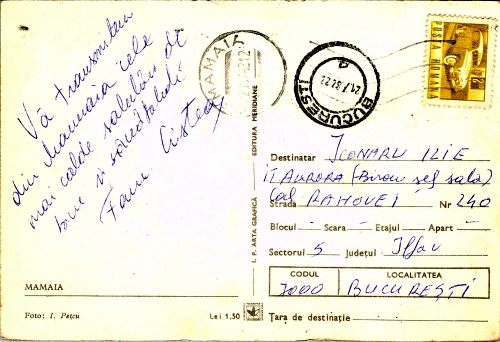 Vă transmitem
din Mamaia cele
mai calde salutări de
bine și sănătate
Fam Cistea
MAMAIA
Foto: I. Pețcu
Lei 1,50
I. P. ARTA GRAFICĂ
EDITURA MERIDIANE
MAMAIA
BUCUREȘTI
POSTA ROMANA
Destinatar ICONARU ILIE
IT AURORA (Birou șef sala)
Strada Cal RAHOVEI Nr 240
Blocul - Scara - Etajul - Apart -
Sectorul 5 Județul Ilfov
CODUL LOCALITATEA
7000 BUCUREȘTI
Țara de destinație